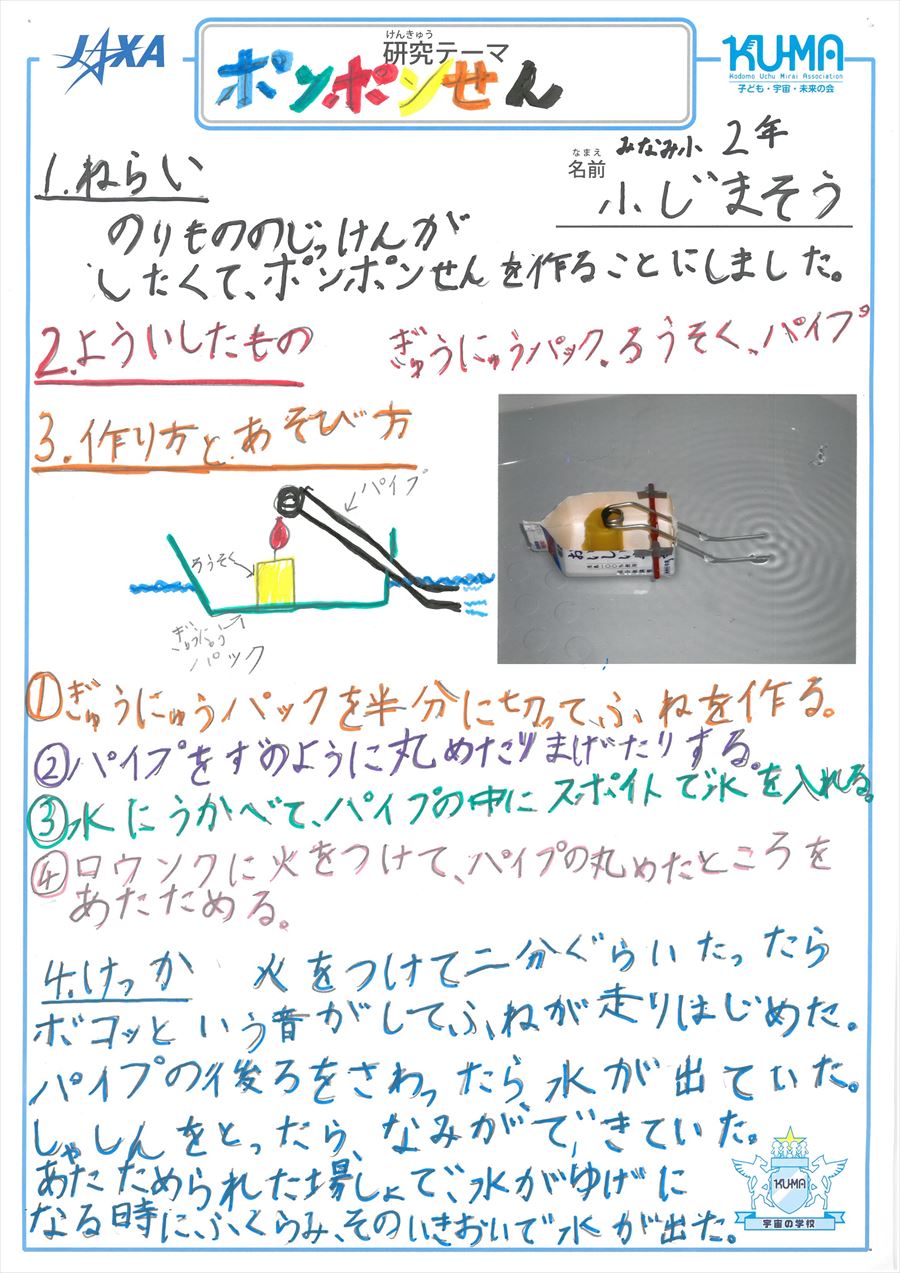 JAXA
けんきゅう
研究テーマ
ポンポンせん
KUMA
Kodomo Uchu Mirai Association
子ども・宇宙・未来の会
みなみ小 2年
なまえ
名前
小じまそう
1.ねらい
のりもののじっけんが
したくて、ポンポンせんを作ることにしました。
2.よういしたもの
ぎゅうにゅうパック、ろうそく、パイプ
3.作り方とあそび方
パイプ
ろうそく
ぎゅうにゅう
パック
おいしい
①ぎゅうにゅうパックを半分に切って、ふねを作る。
②パイプをずのように丸めたりまげたりする。
③水にうかべて、パイプの中にスポイトで水を入れる。
④ロウソクに火をつけて、パイプの丸めたところを
あたためる。
4.けっか 火をつけて二分ぐらいたったら
ボコッという音がして、ふねが走りはじめた。
パイプの後ろをさわったら、水が出ていた。
しゃしんをとったら、なみができていた。
あたためられた場しょで、水がゆげに
なる時に、ふくらみ、そのいきおいで水が出た。
KUMA
宇宙の学校